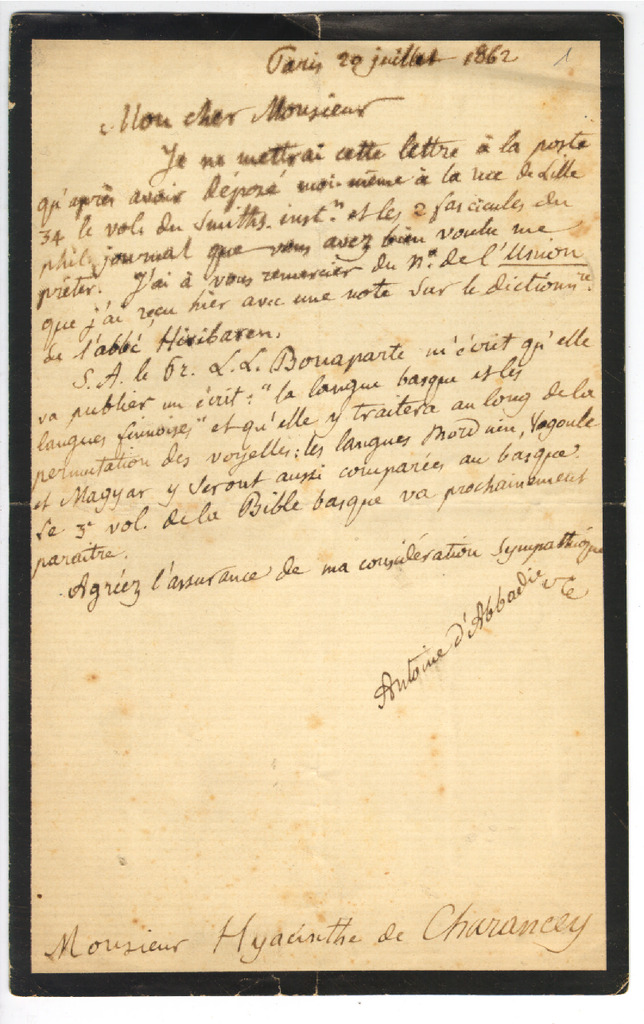 Paris 29 juillet 1862
1
Mon cher Monsieur
Je ne mettrai cette lettre à la poste
qu'après avoir déposé moi-même à la rue de Lille
34 le vol. du Smiths. instn. et les 2 fascicules du
phil. journal que vous avez bien voulu me
prêter. J'ai à vous remercier du No. de l'Union
que j'ai reçu hier avec une note sur le dictionnre.
de l'abbé Hiribaren.
S. A. le Pr. L. L. Bonaparte m'écrit qu'elle
va publier un écrit: "la langue basque et les
langues finnoises" et qu'elle y traitera au long de la
permutation des voyelles: les langues Morduin, Vogoule
et Magyar y seront aussi comparées au basque.
Le 3e vol. de la Bible basque va prochainement
paraitre.
Agréez l'assurance de ma considération sympathique
Antoine d'Abbadie
Monsieur Hyacinthe de Charancey